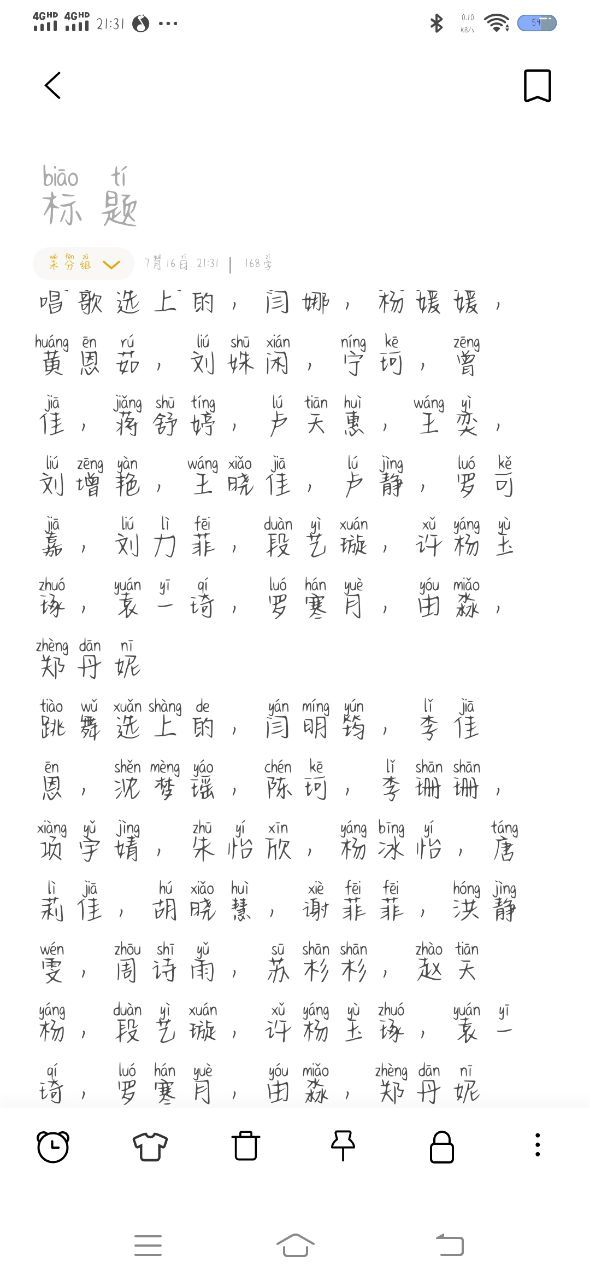 4GHD 4GHD 21:31 ... 0.10 KB/s 54
biāo tí
标题
未分组 7月16日 21:31 | 168字
唱歌选上的，闫娜，杨媛媛，
huáng ēn rú liú shū xián níng kē zēng
黄恩茹，刘姝闲，宁珂，曾
jiā jiǎng shū tíng lú tiān huì wáng yì
佳，蒋舒婷，卢天惠，王奕，
liú zēng yàn wáng xiǎo jiā lú jìng luó kě
刘增艳，王晓佳，卢静，罗可
jiā liú lì fēi duàn yì xuán xǔ yáng yù
嘉，刘力菲，段艺璇，许杨玉
zhuó yuán yī qí luó hán yuè yóu miǎo
琢，袁一琦，罗寒月，由淼，
zhèng dān nī
郑丹妮
tiào wǔ xuǎn shàng de yán míng yún lǐ jiā
跳舞选上的，闫明筠，李佳
ēn shěn mèng yáo chén kē lǐ shān shān
恩，沈梦瑶，陈珂，李珊珊，
xiàng yǔ jìng zhū yí xīn yáng bīng yí táng
项宇婧，朱怡欣，杨冰怡，唐
lì jiā hú xiǎo huì xiè fēi fēi hóng jìng
莉佳，胡晓慧，谢菲菲，洪静
wén zhōu shī yǔ sū shān shān zhào tiān
雯，周诗雨，苏杉杉，赵天
yáng duàn yì xuán xǔ yáng yù zhuó yuán yī
杨，段艺璇，许杨玉琢，袁一
qí luó hán yuè yóu miǎo zhèng dān nī
琦，罗寒月，由淼，郑丹妮